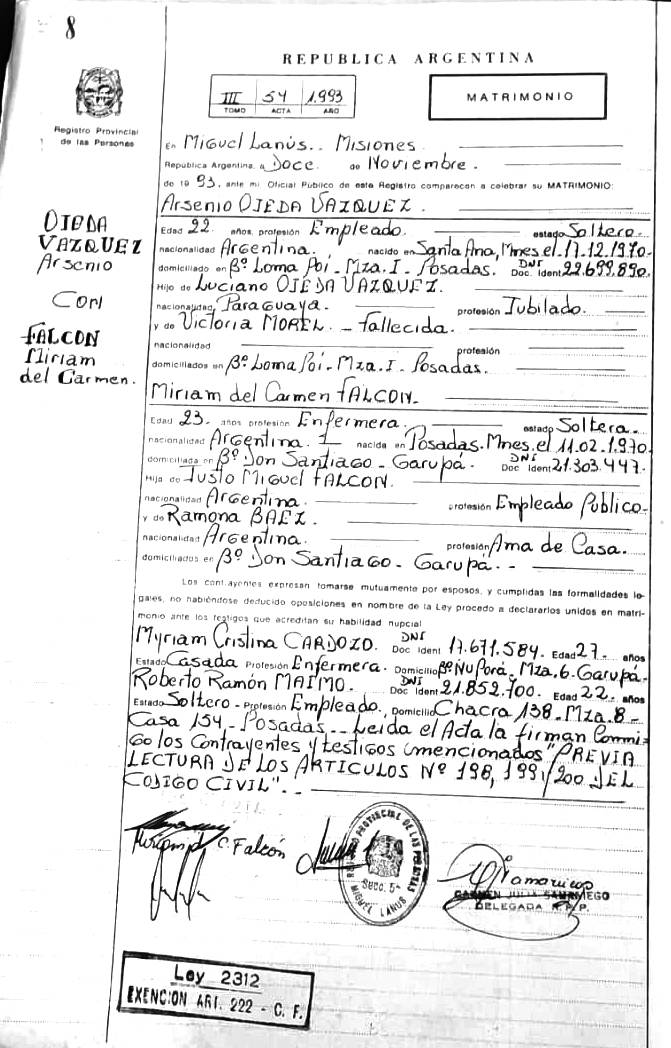 8
REPUBLICA ARGENTINA
III 54 1.993
TOMO ACTA AÑO
MATRIMONIO
Registro Provincial
de las Personas
OJEDA
VAZQUEZ
Arsenio
Con
FALCON
Miriam
del Carmen.
En Miguel Lanús.. Misiones.
República Argentina, a Doce. de Noviembre.
de 19 93. ante mí, Oficial Público de este Registro comparecen a celebrar su MATRIMONIO:
Arsenio OJEDA VAZQUEZ.
Edad 22. años, profesión Empleado. estado Soltero.
nacionalidad Argentina. nacido en Santa Ana, Mnes. el 17.12.1970.
domiciliado en Bº Loma Poi - Mza. I - Posadas. DNI Doc. Ident 22.699.890.
Hijo de Luciano OJEDA VAZQUEZ.
nacionalidad Paraguaya. profesión Jubilado.
y de Victoria MOREL. - Fallecida.
nacionalidad profesión
domiciliados en Bº Loma Poi - Mza. I - Posadas.
Miriam del Carmen FALCON.
Edad 23. años profesión Enfermera. estado Soltera.
nacionalidad Argentina. nacida en Posadas. Mnes. el 11.02.1970.
domiciliada en Bº Don Santiago - Garupá. DNI Doc Ident 21.303.447.
Hija de Justo Miguel FALCON.
nacionalidad Argentina. profesión Empleado Público.
y de Ramona BAEZ.
nacionalidad Argentina. profesión Ama de Casa.
domiciliados en Bº Don Santiago - Garupá. -
Los contrayentes expresan tomarse mutuamente por esposos, y cumplidas las formalidades le-
gales, no habiéndose deducido oposiciones en nombre de la Ley procedo a declararlos unidos en matri-
monio ante los testigos que acreditan su habilidad nupcial
Myriam Cristina CARDOZO. DNI Doc Ident 17.671.584. Edad 27. años
Estado Casada Profesión Enfermera. Domicilio Bº Ñu Porá - Mza. 6 - Garupá.
Roberto Ramón MAIMO. DNI Doc Ident 21.852.700. Edad 22. años
Estado Soltero - Profesión Empleado. Domicilio Chacra 138 - Mza. 8 -
Casa 154 - Posadas - Leida el Acta la firman Conmi-
go los Contrayentes y testigos mencionados "PREVIA
LECTURA DE LOS ARTICULOS Nº 198, 199 y 200 DEL
CODIGO CIVIL". -
Miriam d C. Falcón
REGISTRO PROVINCIAL DE LAS PERSONAS
Secc. 5ª
MIGUEL LANUS
CARMEN JULIA SAMANIEGO
DELEGADA R.P.P.
Ley 2312
EXENCION ART. 222 - C. F.